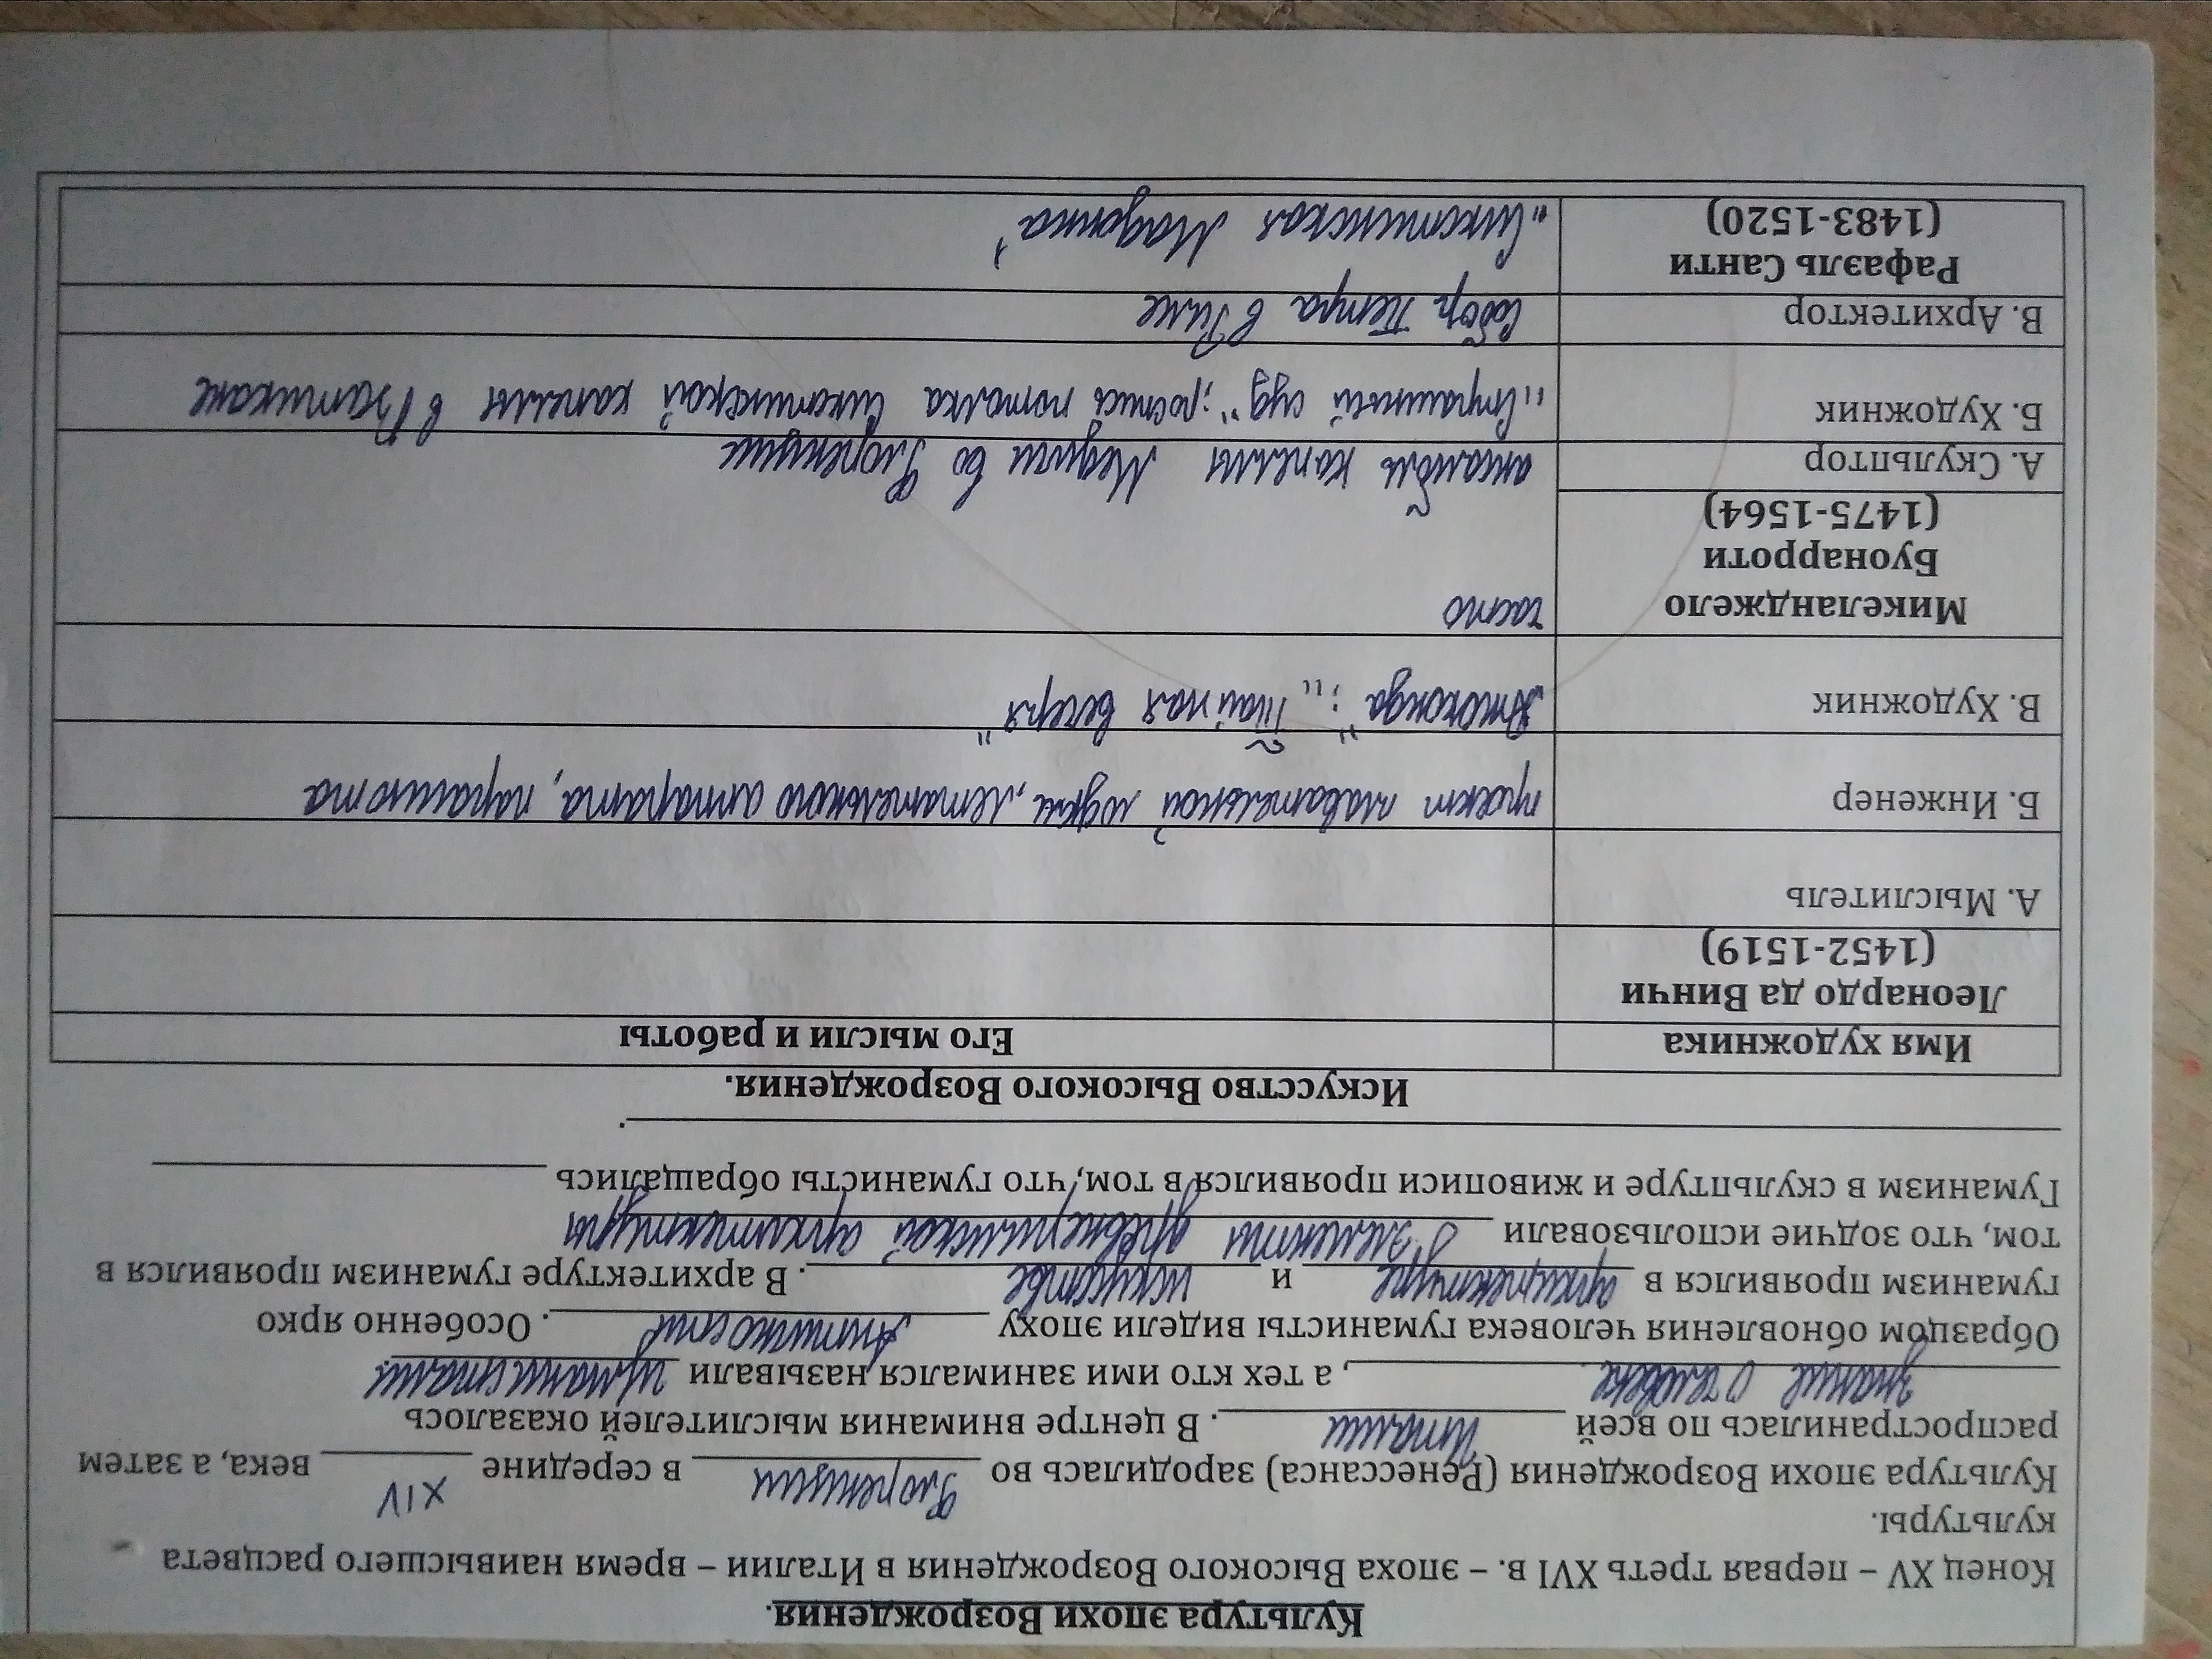 Культура эпохи Возрождения.
Конец XV – первая треть XVI в. – эпоха Высокого Возрождения в Италии – время наивысшего расцвета
культуры.
Культура эпохи Возрождения (Ренессанса) зародилась во Флоренции в середине XIV века, а затем
распространилась по всей Италии. В центре внимания мыслителей оказалось
знание о человеке, а тех кто ими занимался, называли гуманистами.
Образцом обновления человека гуманисты видели эпоху Античности. Особенно ярко
гуманизм проявился в архитектуре и искусстве. В архитектуре гуманизм проявился в
том, что зодчие использовали элементы древнеримской архитектуры
Гуманизм в скульптуре и живописи проявился в том, что гуманисты обращались
Искусство Высокого Возрождения.
Имя художника Его мысли и работы
Леонардо да Винчи
(1452-1519)
А. Мыслитель
Б. Инженер проект плавательной лодки, летательного аппарата, парашюта
В. Художник „Джоконда"; „Тайная вечеря"
Микеланджело
Буонарроти
(1475-1564)
А. Скульптор ансамбль капеллы Медичи во Флоренции
Б. Художник „Страшный суд"; роспись потолка Сикстинской капеллы в Ватикане
В. Архитектор Собор Петра в Риме
Рафаэль Санти
(1483-1520)
„Сикстинская Мадонна"